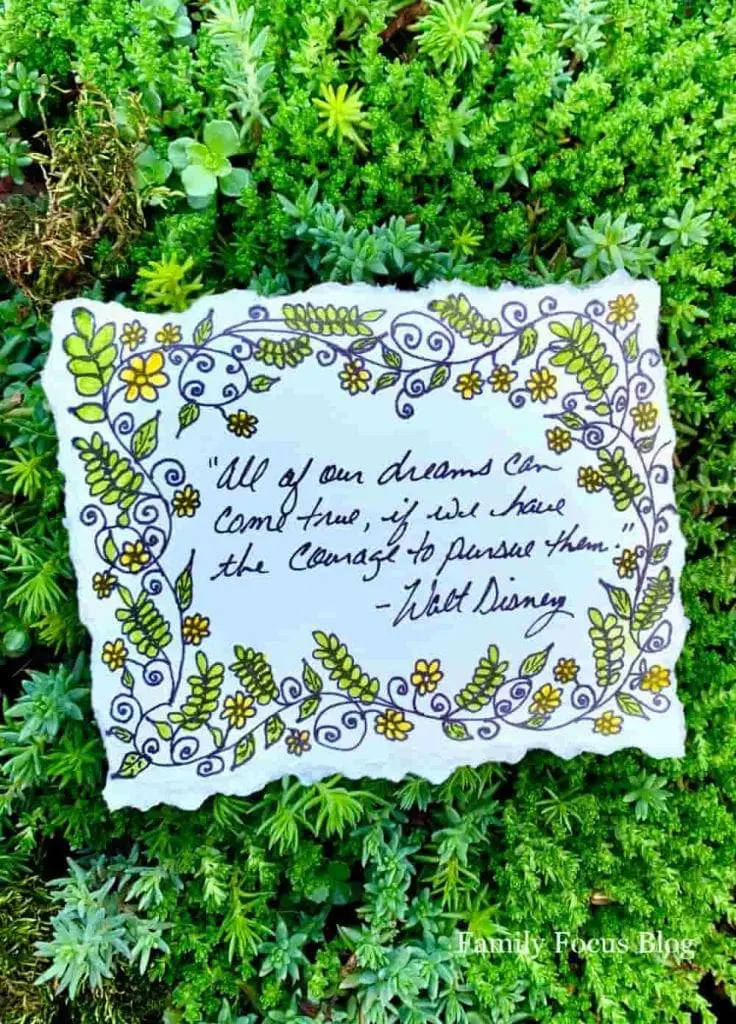 "All of our dreams can
come true, if we have
the courage to pursue them."
- Walt Disney
Family Focus Blog